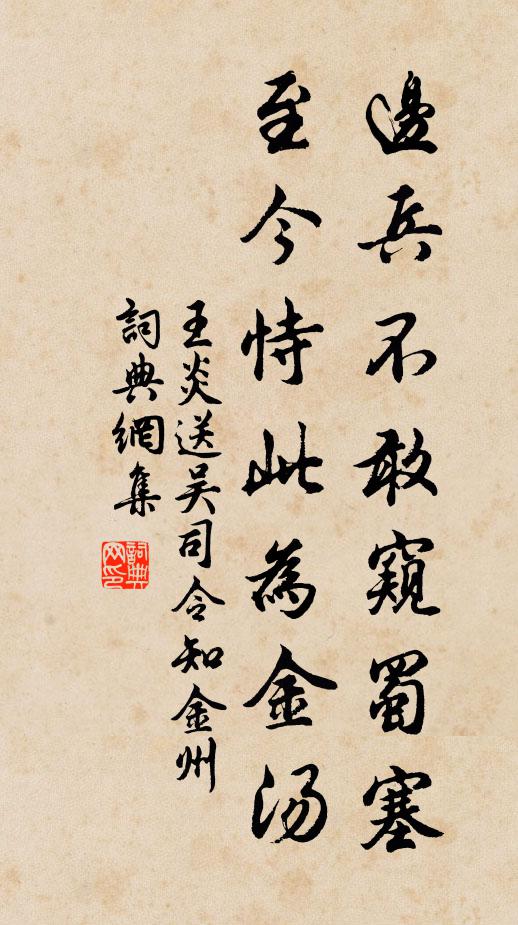 邊兵不敢窺蜀塞
至今恃此為金汤
王炎送吴司令知金州
詞典網集
詞典
网印